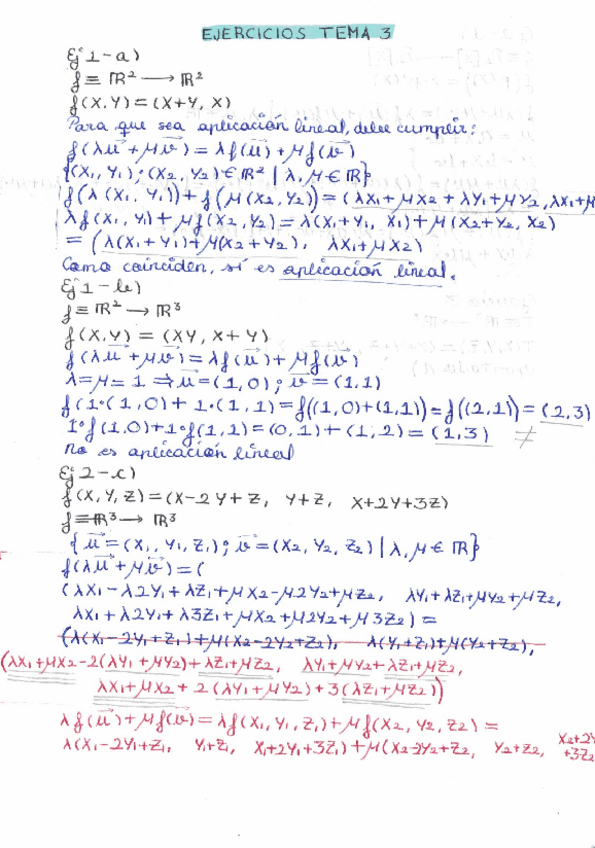 EJERCICIOS TEMA 3
Ej 1-a)
f≡ ℝ² ⟶ ℝ²
f(X,Y)=(X+Y, X)
Para que sea aplicación lineal, debe cumplir:
f(λu⃗+μv⃗)=λf(u⃗)+μf(v⃗)
{(X₁,Y₁);(X₂,Y₂)∈ℝ² | λ,μ∈ℝ}
f(λ(X₁,Y₁))+f(μ(X₂,Y₂))=(λX₁+μX₂+λY₁+μY₂,λX₁+μ
λf(X₁,Y₁)+μf(X₂,Y₂)=λ(X₁+Y₁, X₁)+μ(X₂+Y₂, X₂)
=(λ(X₁+Y₁)+μ(X₂+Y₂), λX₁+μX₂)
Como coinciden, sí es aplicación lineal.
Ej 1-b)
f≡ℝ² ⟶ ℝ³
f(X,Y)=(XY, X+Y)
f(λu⃗+μv⃗)=λf(u⃗)+μf(v⃗)
λ=μ=1 ⇒u⃗=(1,0); v⃗=(1,1)
f(1·(1,0)+1·(1,1)=f((1,0)+(1,1))=f((2,1))=(2,3)
1·f(1,0)+1·f(1,1)=(0,1)+(1,2)=(1,3) ≠
no es aplicación lineal
Ej 2-c)
f(X,Y,Z)=(X-2Y+Z, Y+Z, X+2Y+3Z)
f≡ℝ³⟶ ℝ³
{u⃗=(X₁,Y₁,Z₁); v⃗=(X₂,Y₂,Z₂) | λ,μ∈ℝ}
f(λu⃗+μv⃗)=(
(λX₁-λ2Y₁+λZ₁+μX₂-μ2Y₂+μZ₂, λY₁+λZ₁+μY₂+μZ₂,
λX₁+λ2Y₁+λ3Z₁+μX₂+μ2Y₂+μ3Z₂)=
(λ(X₁-2Y₁+Z₁)+μ(X₂-2Y₂+Z₂), λ(Y₁+Z₁)+μ(Y₂+Z₂),
(λX₁+μX₂-2(λY₁+μY₂)+λZ₁+μZ₂, λY₁+μY₂+λZ₁+μZ₂,
λX₁+μX₂+2(λY₁+μY₂)+3(λZ₁+μZ₂))
λf(u⃗)+μf(v⃗)=λf(X₁,Y₁,Z₁)+μf(X₂,Y₂,Z₂)=
λ(X₁-2Y₁+Z₁, Y₁+Z₁, X₁+2Y₁+3Z₁)+μ(X₂-2Y₂+Z₂, Y₂+Z₂, X₂+2Y
+3Z₂